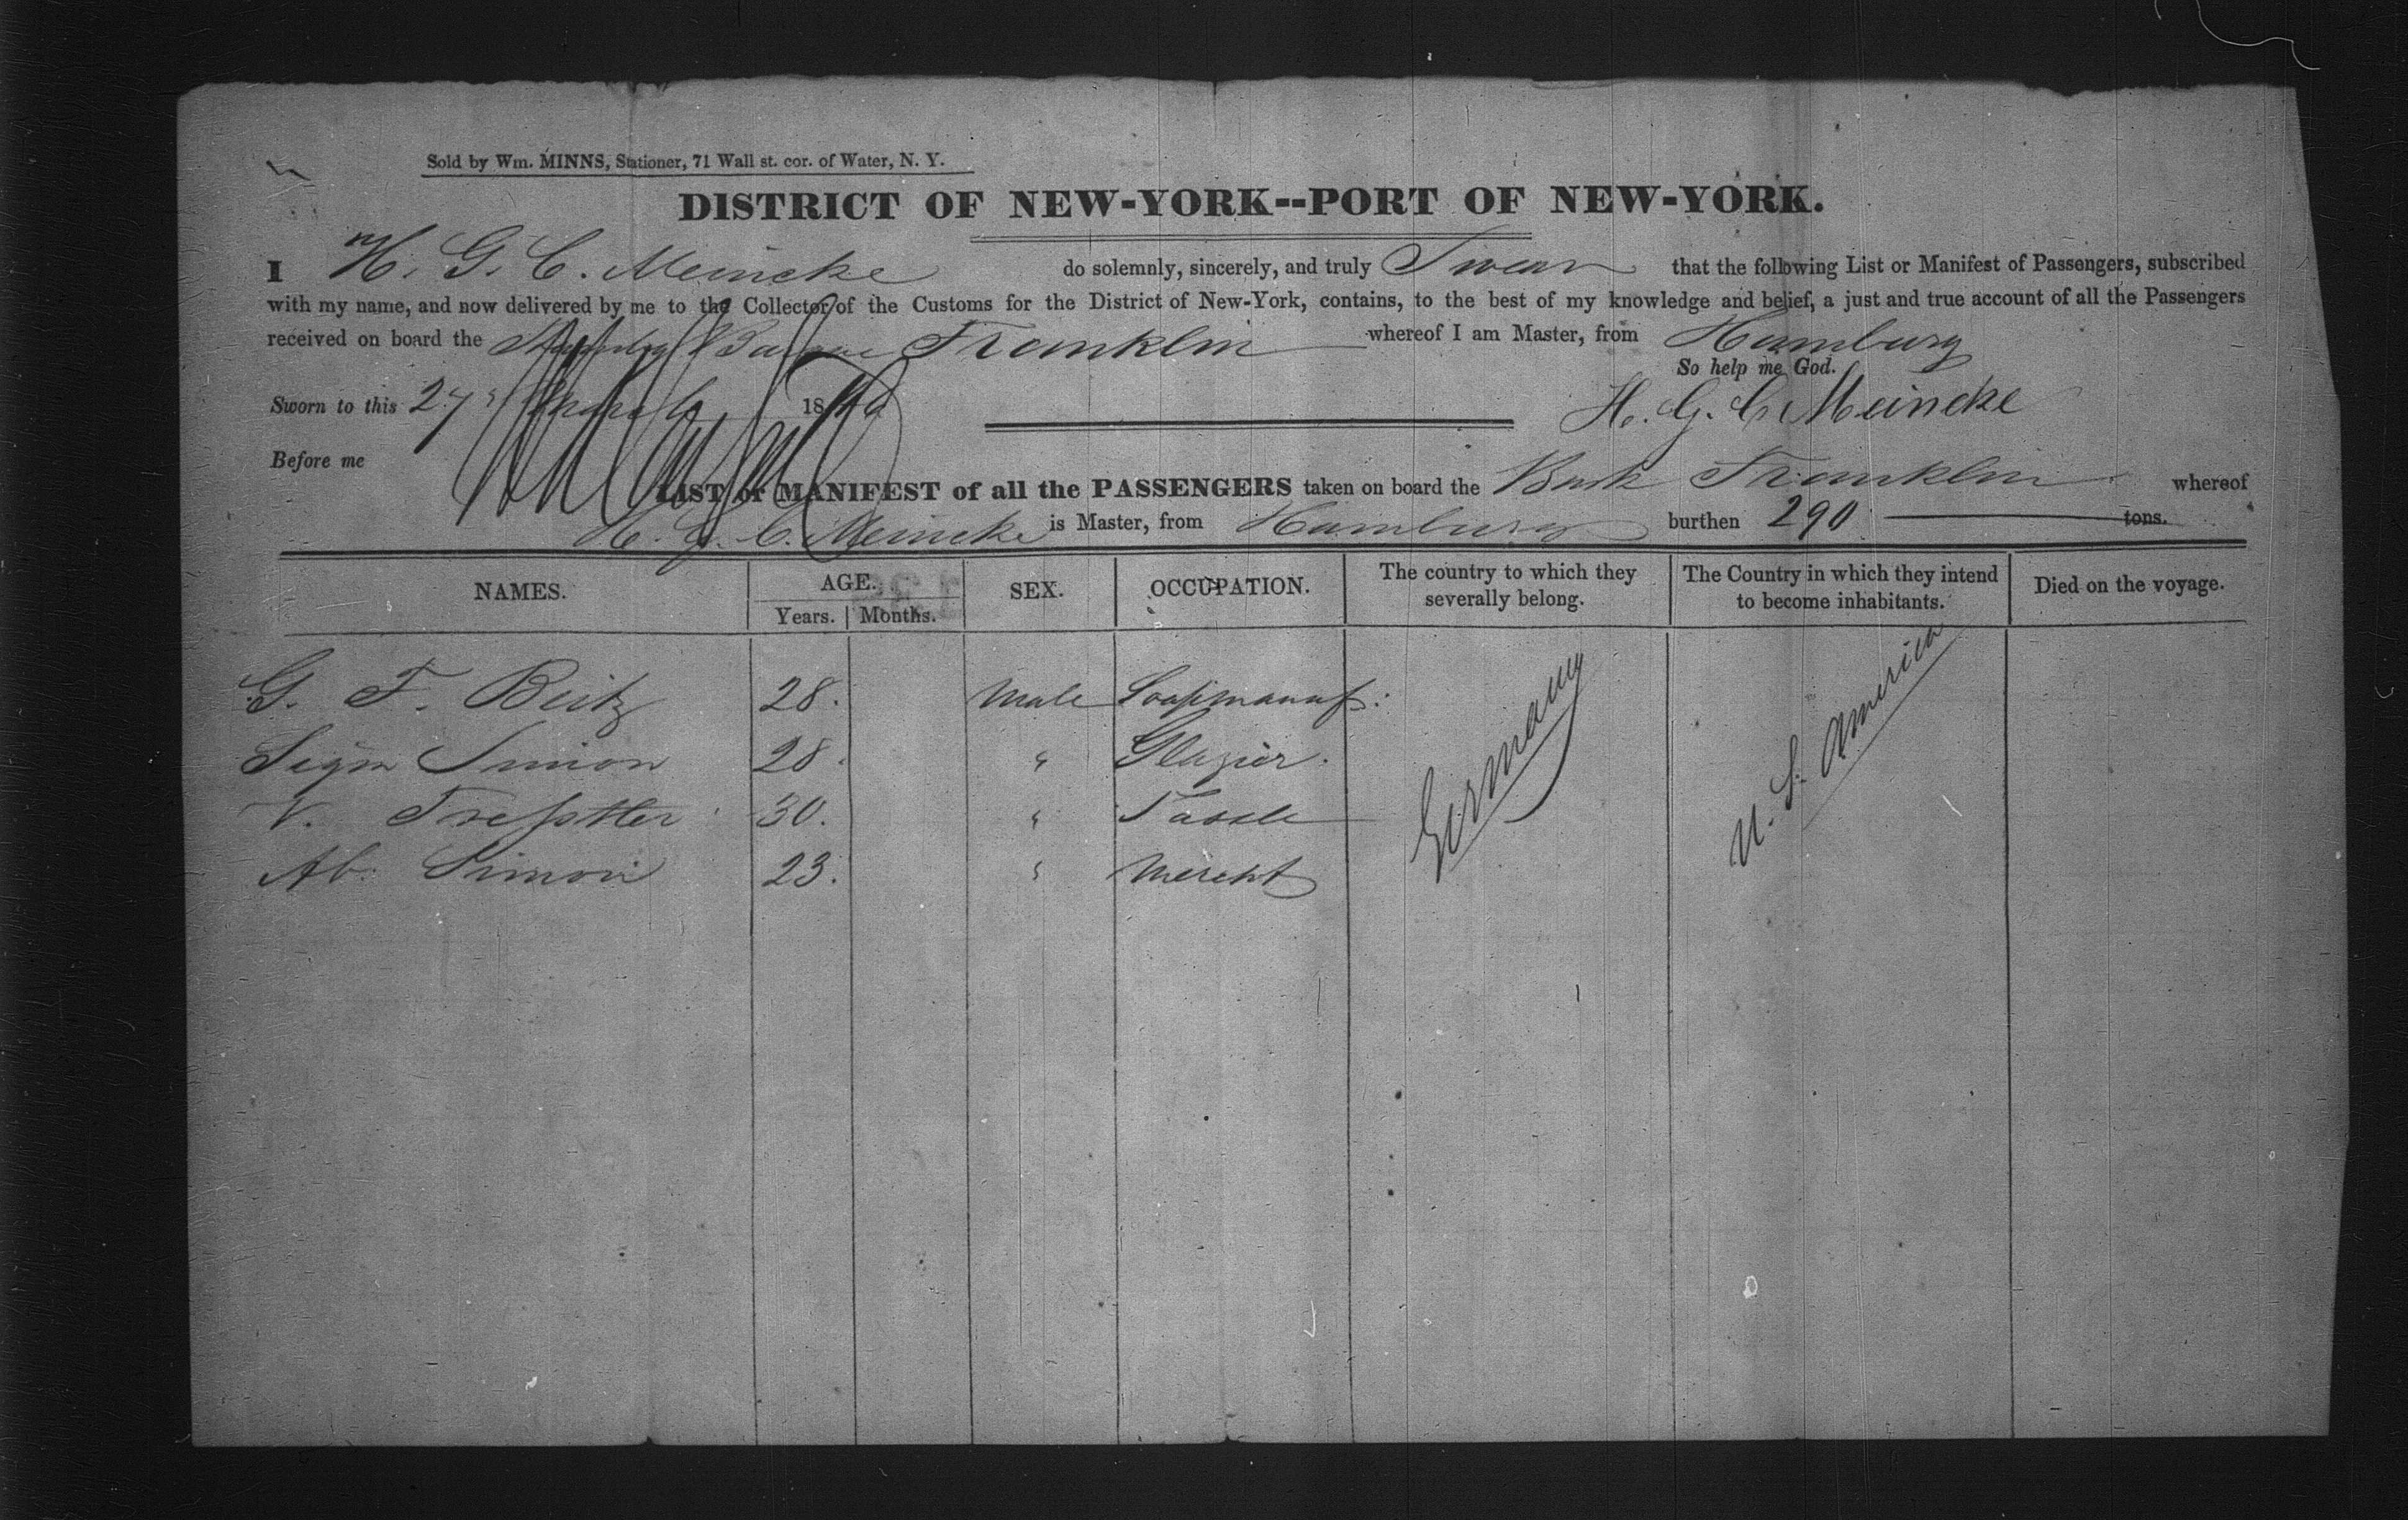 Sold by Wm. MINNS, Stationer, 71 Wall st. cor. of Water, N. Y.
DISTRICT OF NEW-YORK--PORT OF NEW-YORK.
I H. G. C. Meincke do solemnly, sincerely, and truly Swear that the following List or Manifest of Passengers, subscribed
with my name, and now delivered by me to the Collector of the Customs for the District of New-York, contains, to the best of my knowledge and belief, a just and true account of all the Passengers
received on board the Barque Franklin whereof I am Master, from Hamburg
So help me God.
Sworn to this 27 18 H. G. C. Meincke
Before me
LIST or MANIFEST of all the PASSENGERS taken on board the Bark Franklin whereof
H. G. C. Meincke is Master, from Hamburg burthen 290 tons.
NAMES. AGE. SEX. OCCUPATION. The country to which they severally belong. The Country in which they intend to become inhabitants. Died on the voyage.
Years. Months.
G. F. Beitz 28. Male Soapmanuf: Germany U. S. America
Sigm Simon 28. " Glazier.
V. 30. "
Ab. Simon 23. " Mercht